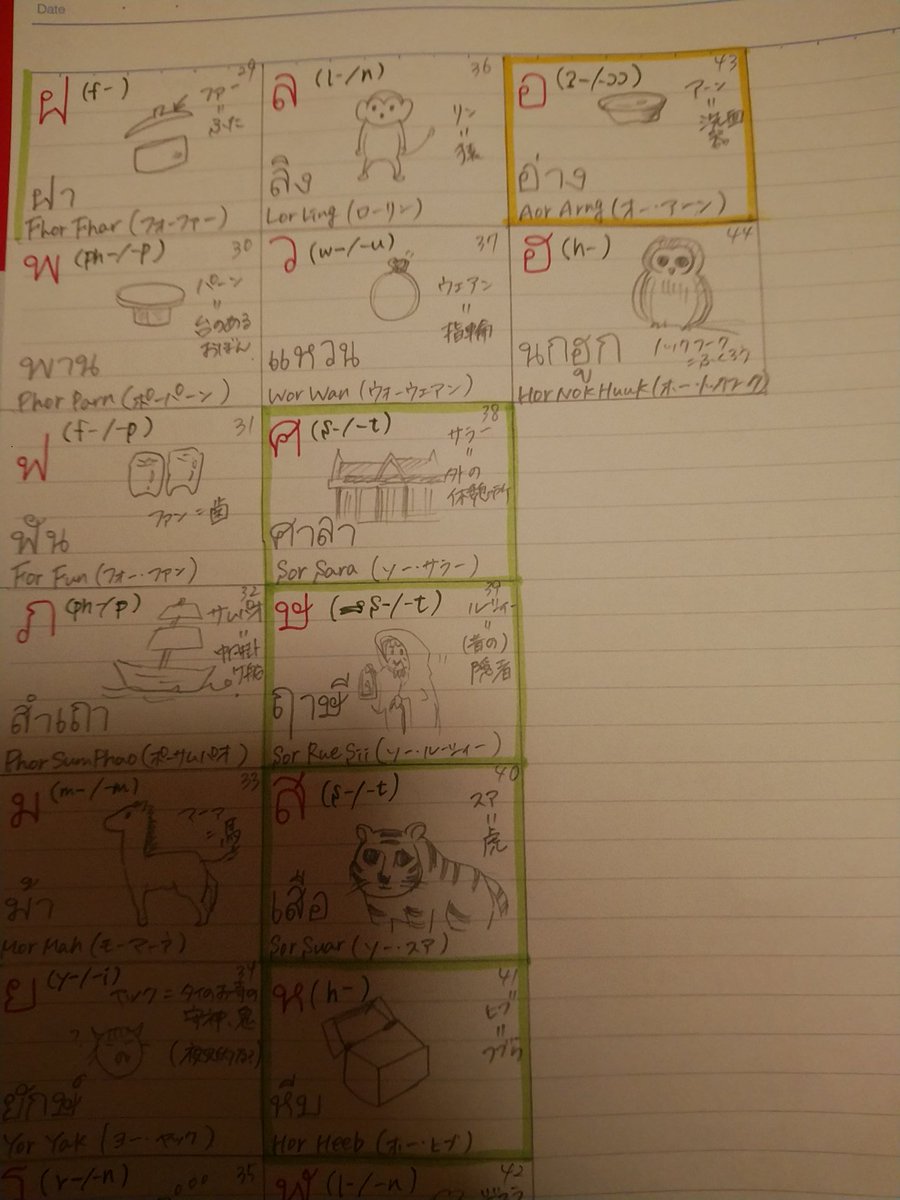 Date
29
ฝ (f-)
ファー
=
ふた
ฝา
Fhor Fhar (フォーファー)
30
พ (ph-/-p)
パーン
=
台のある
おぼん
พาน
Phor Parn (ポーパーン)
31
ฟ (f-/-p)
ファン=歯
ฟัน
For Fun (フォー・ファン)
32
ภ (ph-/p)
サムパオ
=
สำเภา
Phor Sum Phao (ポーサムパオ)
33
ม (m-/-m)
マーア
=馬
ม้า
Mor Mah (モーマーア)
34
ย (y-/-i)
ヤック=タイのお寺の
守神、鬼
ยักษ์
Yor Yak (ヨー・ヤック)
35
ร (r-/-n)
36
ล (l-/n)
リン
=
猿
ลิง
Lor Ling (ローリン)
37
ว (w-/-u)
ウェアン
=
指輪
แหวน
Wor Wan (ウォーウェアン)
38
ศ (s-/-t)
サラー
=
外の
休憩所
ศาลา
Sor Sara (ソー・サラー)
39
ษ (s-/-t)
ルーシィー
=
(昔の)
隠者
ฤาษี
Sor Rue Sii (ソー・ルーシィー)
40
ส (s-/-t)
スア
=
虎
เสือ
Sor Suar (ソー・スア)
41
ห (h-)
ヒプ
=
หีบ
Hor Heeb (ホー・ヒプ)
42
ฬ (l-/-n)
43
อ (ʔ-/-ɔɔ)
アーン
=
洗面
器
อ่าง
Aor Arng (オー・アーン)
44
ฮ (h-)
นกฮูก
ノックフーク
=ふくろう
Hor Nok Huuk (ホー・ノックフーク)